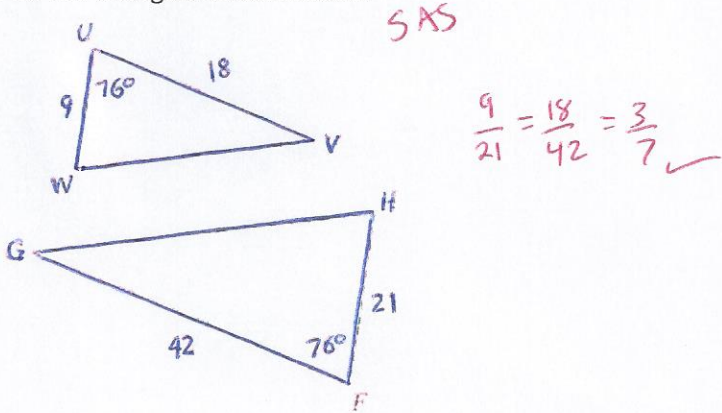 SAS
U
18
76°
9
V
W
9/21 = 18/42 = 3/7 ✓
H
G
21
42
76°
F